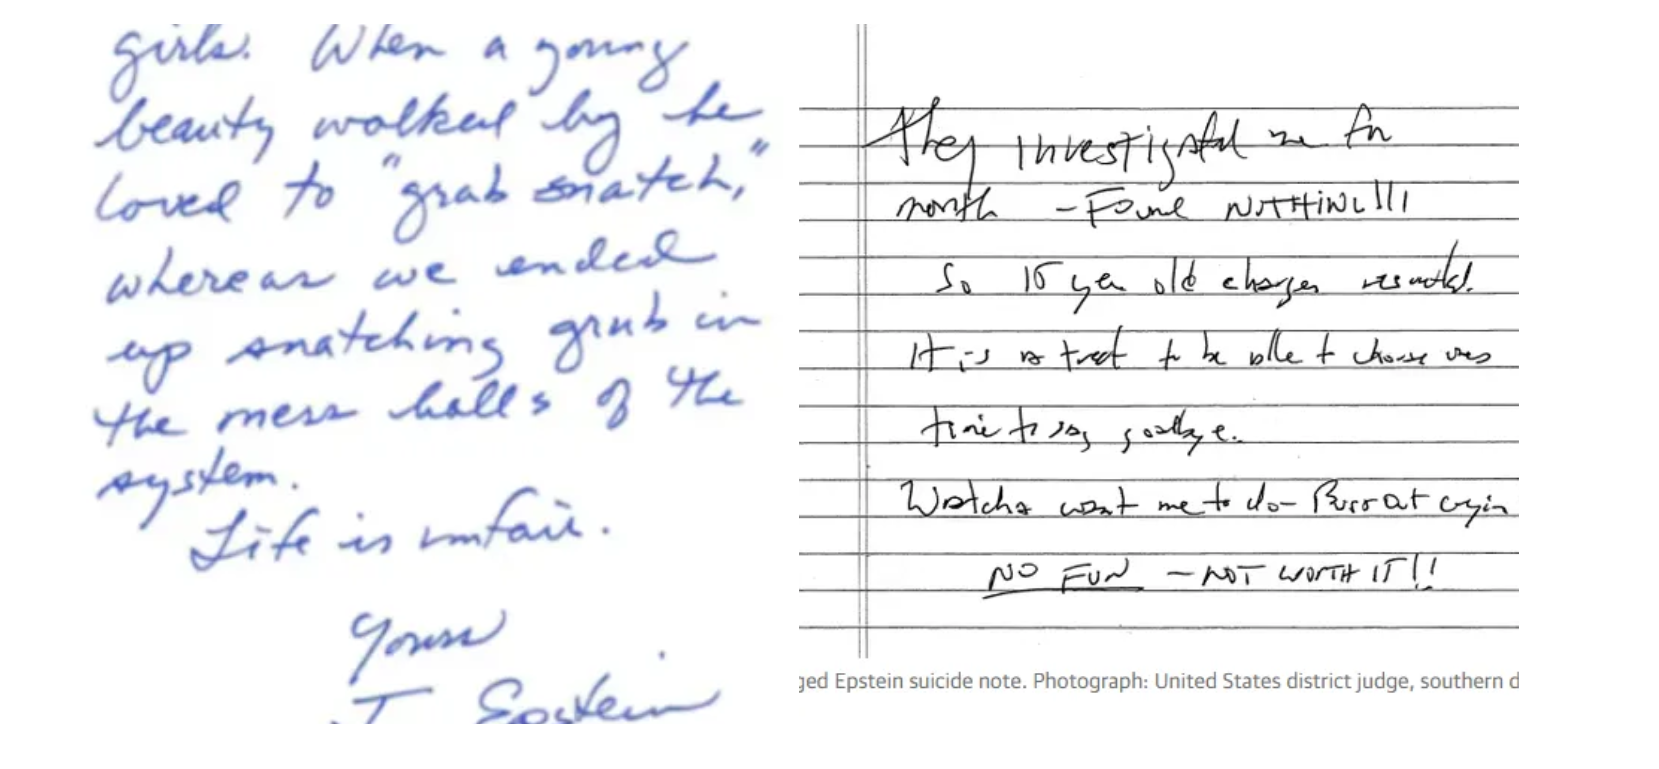 girls. When a young
beauty walked by he
loved to "grab snatch,"
whereas we ended
up snatching grub in
the mess halls of the
system.
Life is unfair.
Yours
J. Epstein
they investigated me for
month - Found NOTHING!!!
So 15 year old charges resulted.
It is a treat to be able to choose ones
time to say goodbye.
Watcha want me to do - Burst out cryin
NO FUN - NOT WORTH IT!!
ged Epstein suicide note. Photograph: United States district judge, southern d